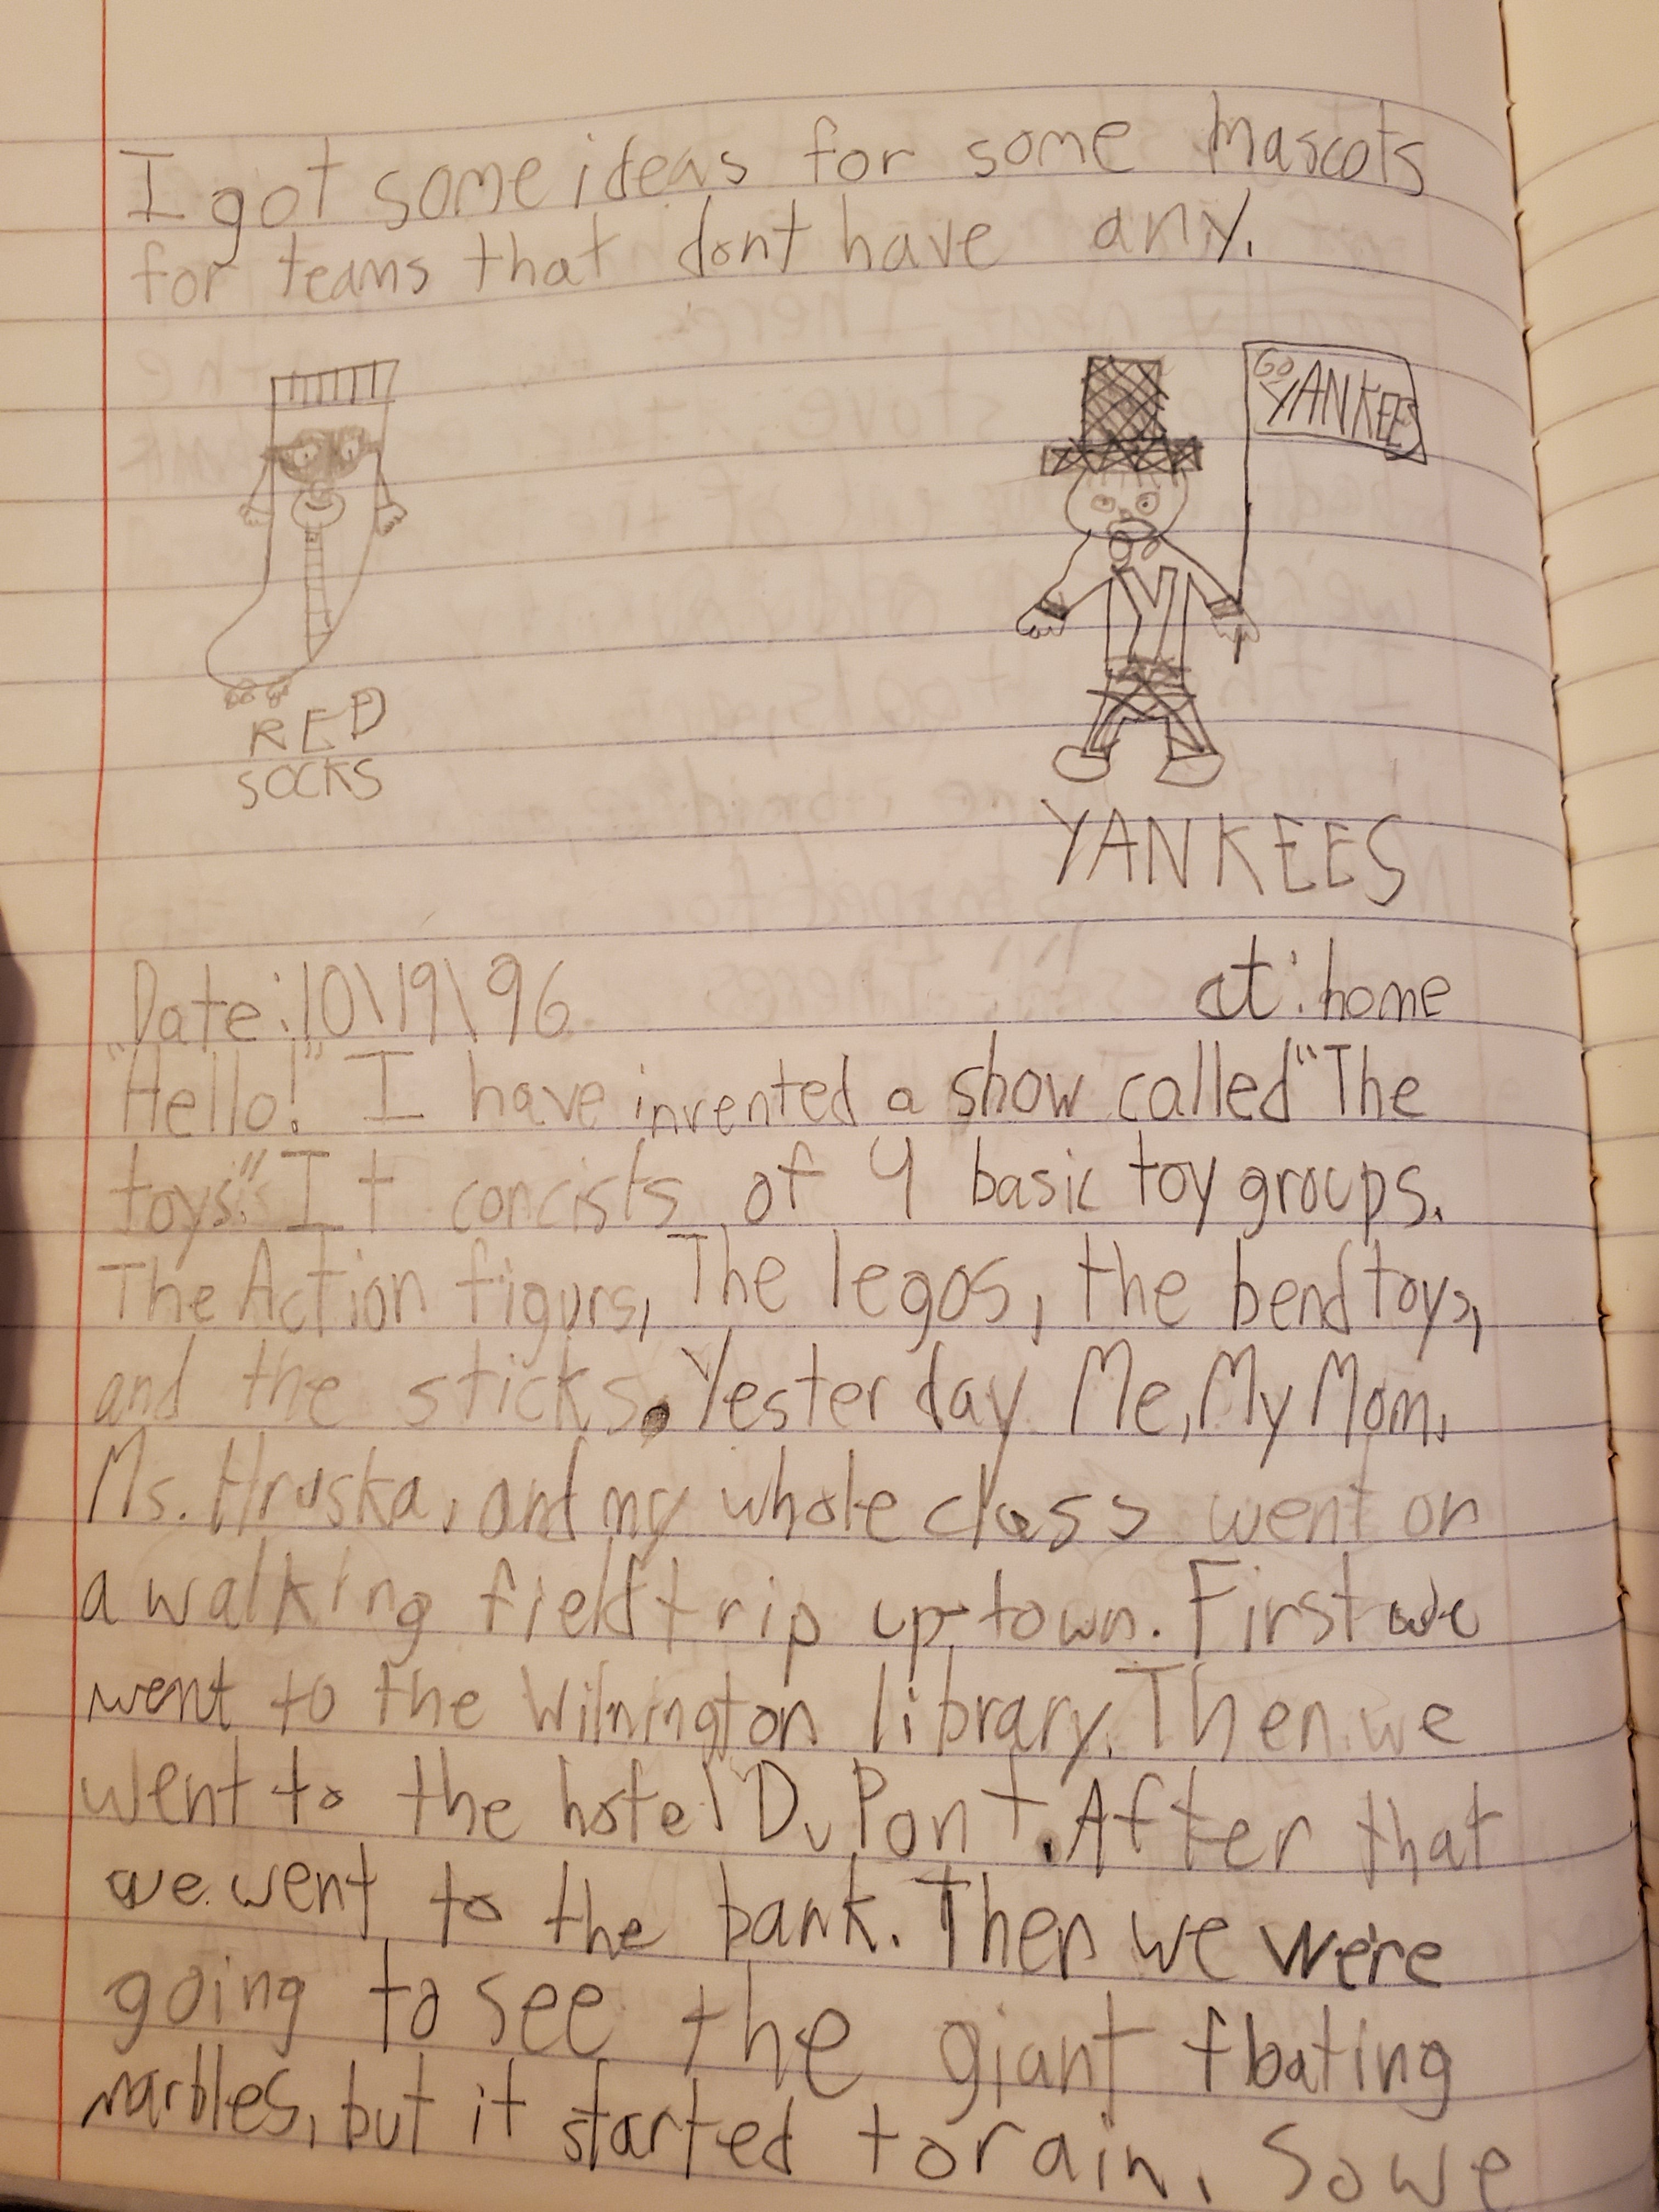 I got some ideas for some Mascots
for teams that dont have any.
GO
YANKEES
RED
SOCKS
YANKEES
Date:10\19\96
at: home
"Hello!" I have invented a show called "The
toys." It concists of 4 basic toy groups.
The Action figurs, The legos, the bend toys,
and the sticks. Yesterday Me, My Mom,
Ms. Hruska, and my whole class went on
a walking field trip up town. First we
went to the Wilmington library. Then we
went to the hotel DuPont. After that
we went to the bank. Then we were
going to see the giant floating
marbles, but it started to rain. So we